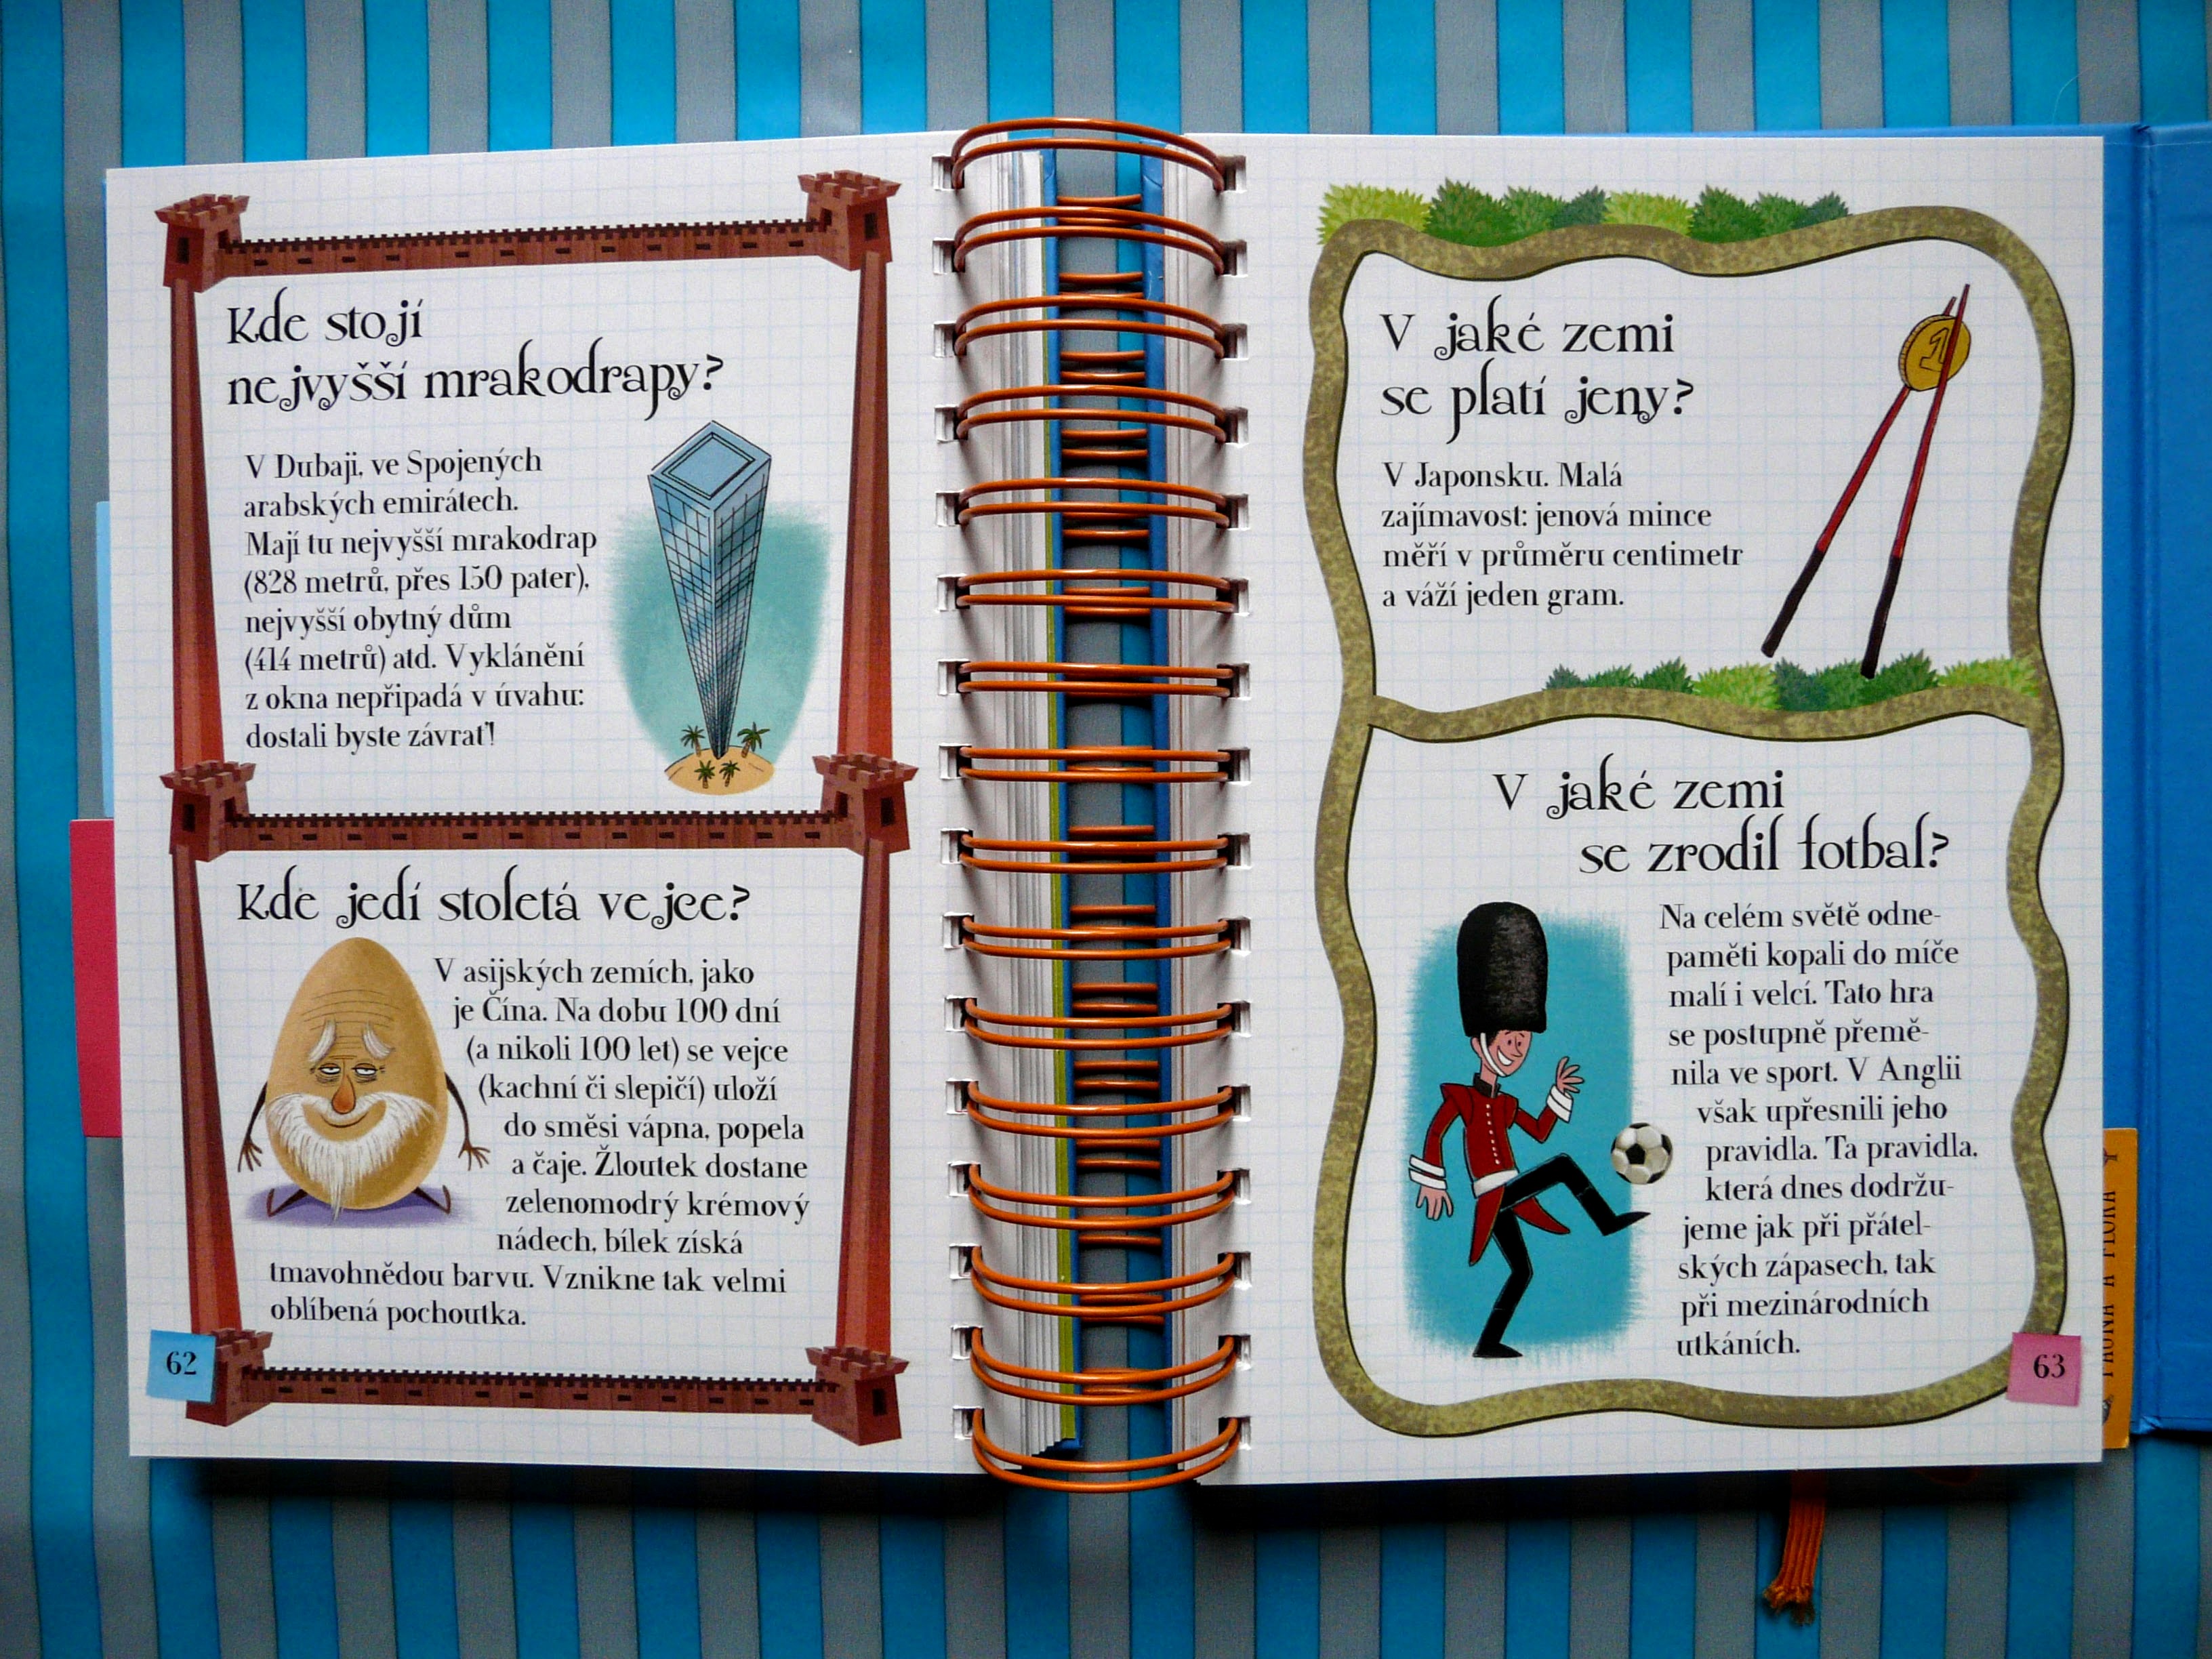 Kde stojí
nejvyšší mrakodrapy?
V Dubaji, ve Spojených
arabských emirátech.
Mají tu nejvyšší mrakodrap
(828 metrů, přes 150 pater),
nejvyšší obytný dům
(414 metrů) atd. Vyklánění
z okna nepřipadá v úvahu:
dostali byste závrať!
Kde jedí stoletá vejce?
V asijských zemích, jako
je Čína. Na dobu 100 dní
(a nikoli 100 let) se vejce
(kachní či slepičí) uloží
do směsi vápna, popela
a čaje. Žloutek dostane
zelenomodrý krémový
nádech, bílek získá
tmavohnědou barvu. Vznikne tak velmi
oblíbená pochoutka.
62
V jaké zemi
se platí jeny?
1
V Japonsku. Malá
zajímavost: jenová mince
měří v průměru centimetr
a váží jeden gram.
V jaké zemi
se zrodil fotbal?
Na celém světě odne-
paměti kopali do míče
malí i velcí. Tato hra
se postupně přemě-
nila ve sport. V Anglii
však upřesnili jeho
pravidla. Ta pravidla,
která dnes dodržu-
jeme jak při přátel-
ských zápasech, tak
při mezinárodních
utkáních.
63
FAUNA A FLÓRA